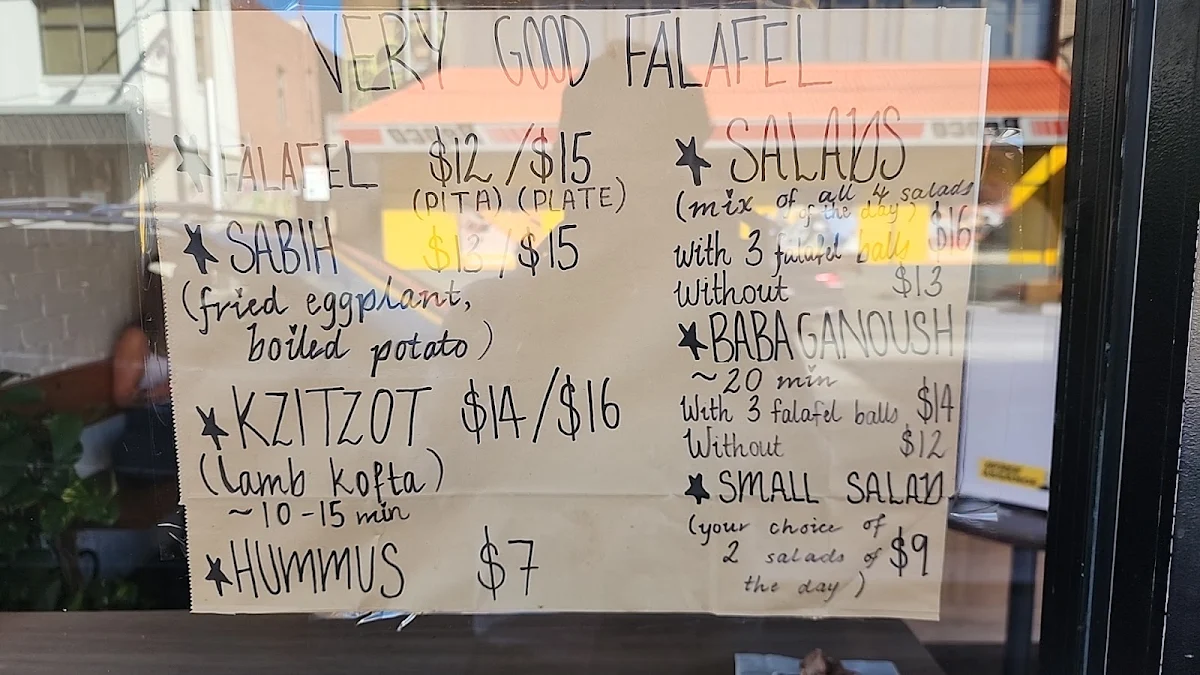 VERY GOOD FALAFEL
FALAFEL $12/$15
(PITA) (PLATE)
SABIH $13/$15
(fried eggplant,
boiled potato)
KZITZOT $14/$16
(lamb kofta)
~10-15 min
HUMMUS $7
SALADS
(mix of all 4 salads
of the day) $16
with 3 falafel balls
without $13
BABAGANOUSH
~20 min
With 3 falafel balls $14
Without $12
SMALL SALAD
(your choice of
2 salads of $9
the day)